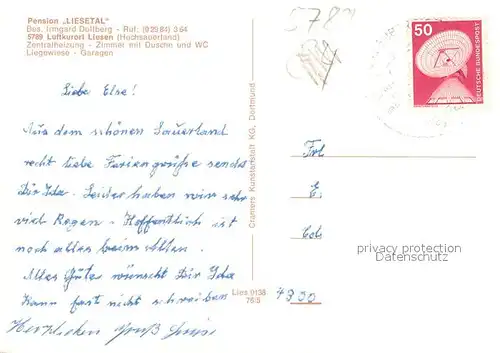 Pension „LIESETAL"
Bes. Irmgard Dollberg - Ruf: (02984) 364
5789 Luftkurort Liesen (Hochsauerland)
Zentralheizung - Zimmer mit Dusche und WC
Liegewiese - Garagen
5789
50
DEUTSCHE BUNDESPOST
Liebe Else!
Aus dem schönen Sauerland
recht liebe Feriengrüße sendet
Dir Ida. Leider haben wir sehr
viel Regen. Hoffentlich ist
noch alles beim Alten.
Alles Gute wünscht Dir Ida
Kann fast nicht schreiben
Herzlichen Gruß
Cramers Kunstanstalt KG, Dortmund
Lies 9138
76/5
Frl
E.
4930
privacy protection
Datenschutz